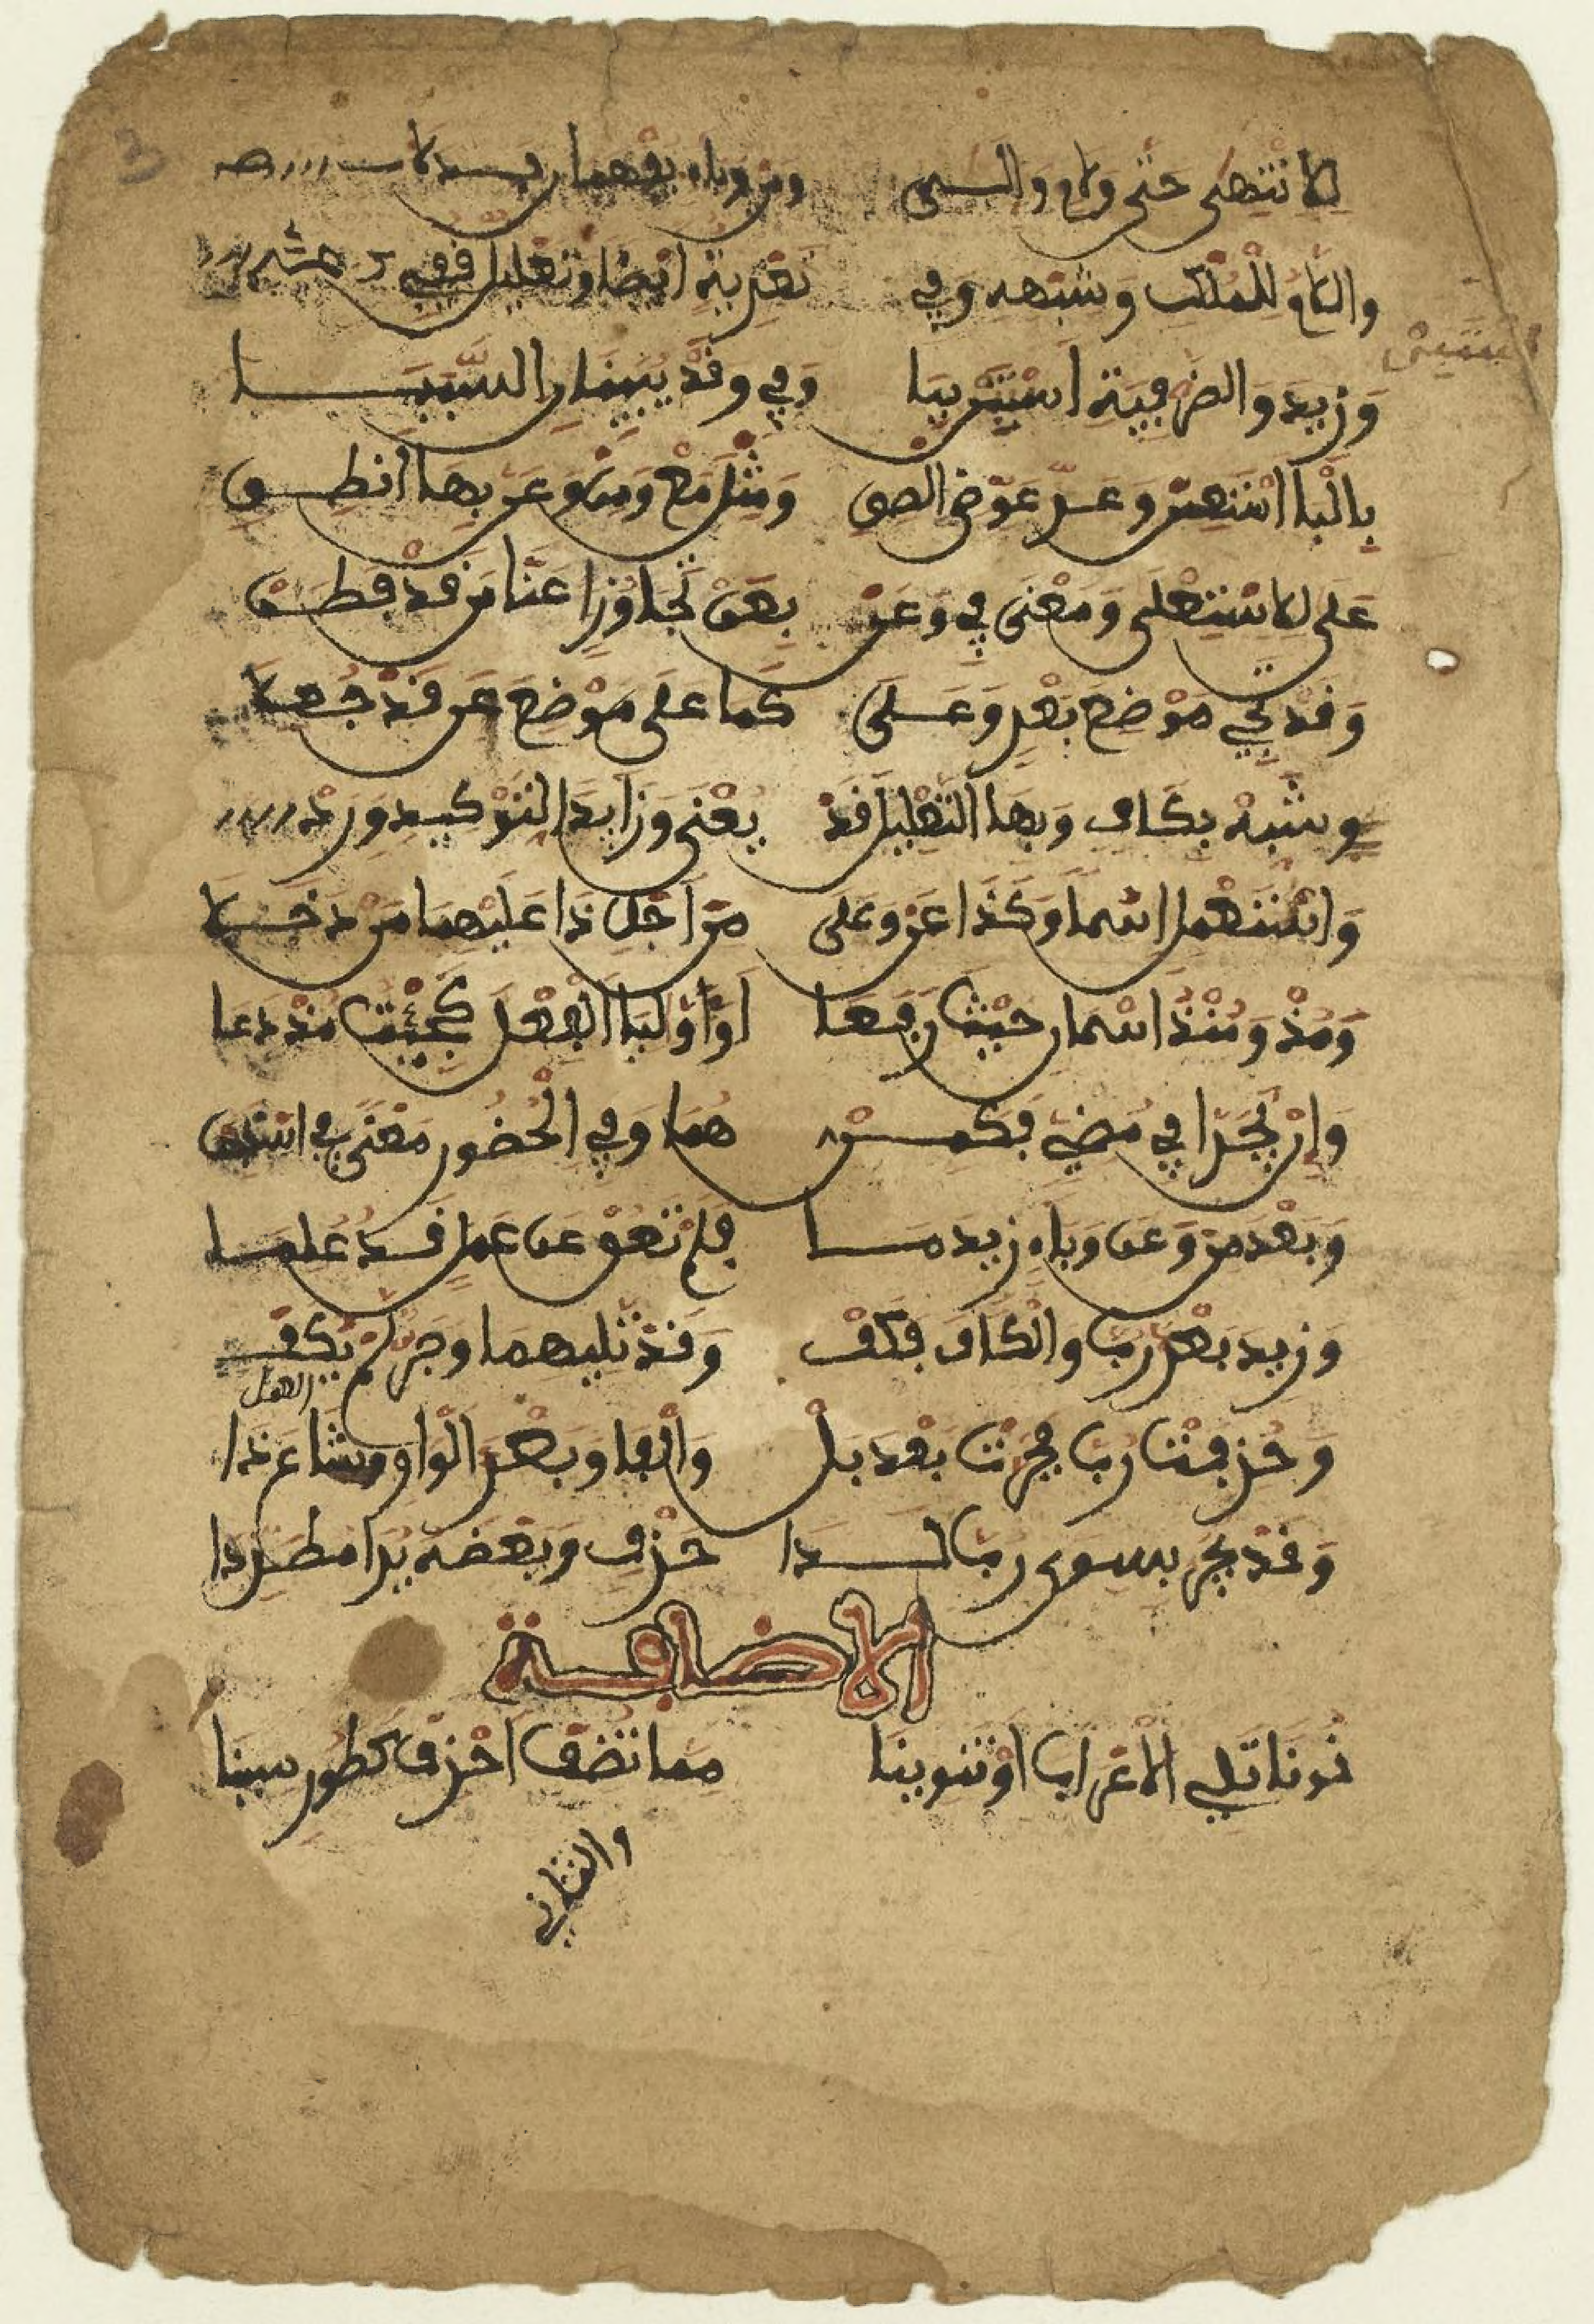 للانتهى حتى ولام والى ومن وباء يفهمان بدلا
واللام للملك وشبهه وفي تعدية ايضا وتعليل قفي
وزيد والظرفية استبن ببا وفي وقد يبينان السببا
بالبا استعن وعد عوض الصق ومثل مع ومن وعن بها انطق
على للاستعلى ومعنى في وعن بعن تجاوزا عنا من قد فطن
وقد تجي موضع بعد وعلى كما على موضع عن قد جعلا
وشبه بكاف وبها التعليل قد يعنى وزايدا لتوكيد ورد
واستعمل اسما وكذا عن وعلى من اجل ذا عليهما من دخلا
ومذ ومنذ اسمان حيث رفعا او اوليا الفعل كجئت مذ دعا
وان يجرا في مضي فكمن هما وفي الحضور معنى في استبن
وبعد من وعن وباء زيد ما فلم تعق عن عمل قد علما
وزيد بعد رب والكاف فكف وقد تليهما وجر لم يكف
العمل
وحذفت رب فجرت بعد بل والفا وبعد الواو وشاع ذا
وقد يجر بسوى رب لدا حذف وبعضه يرا مطردا
الاضافة
نونا تلي الاعراب او تنوينا مما تضف احذف كطور سينا
والثاني